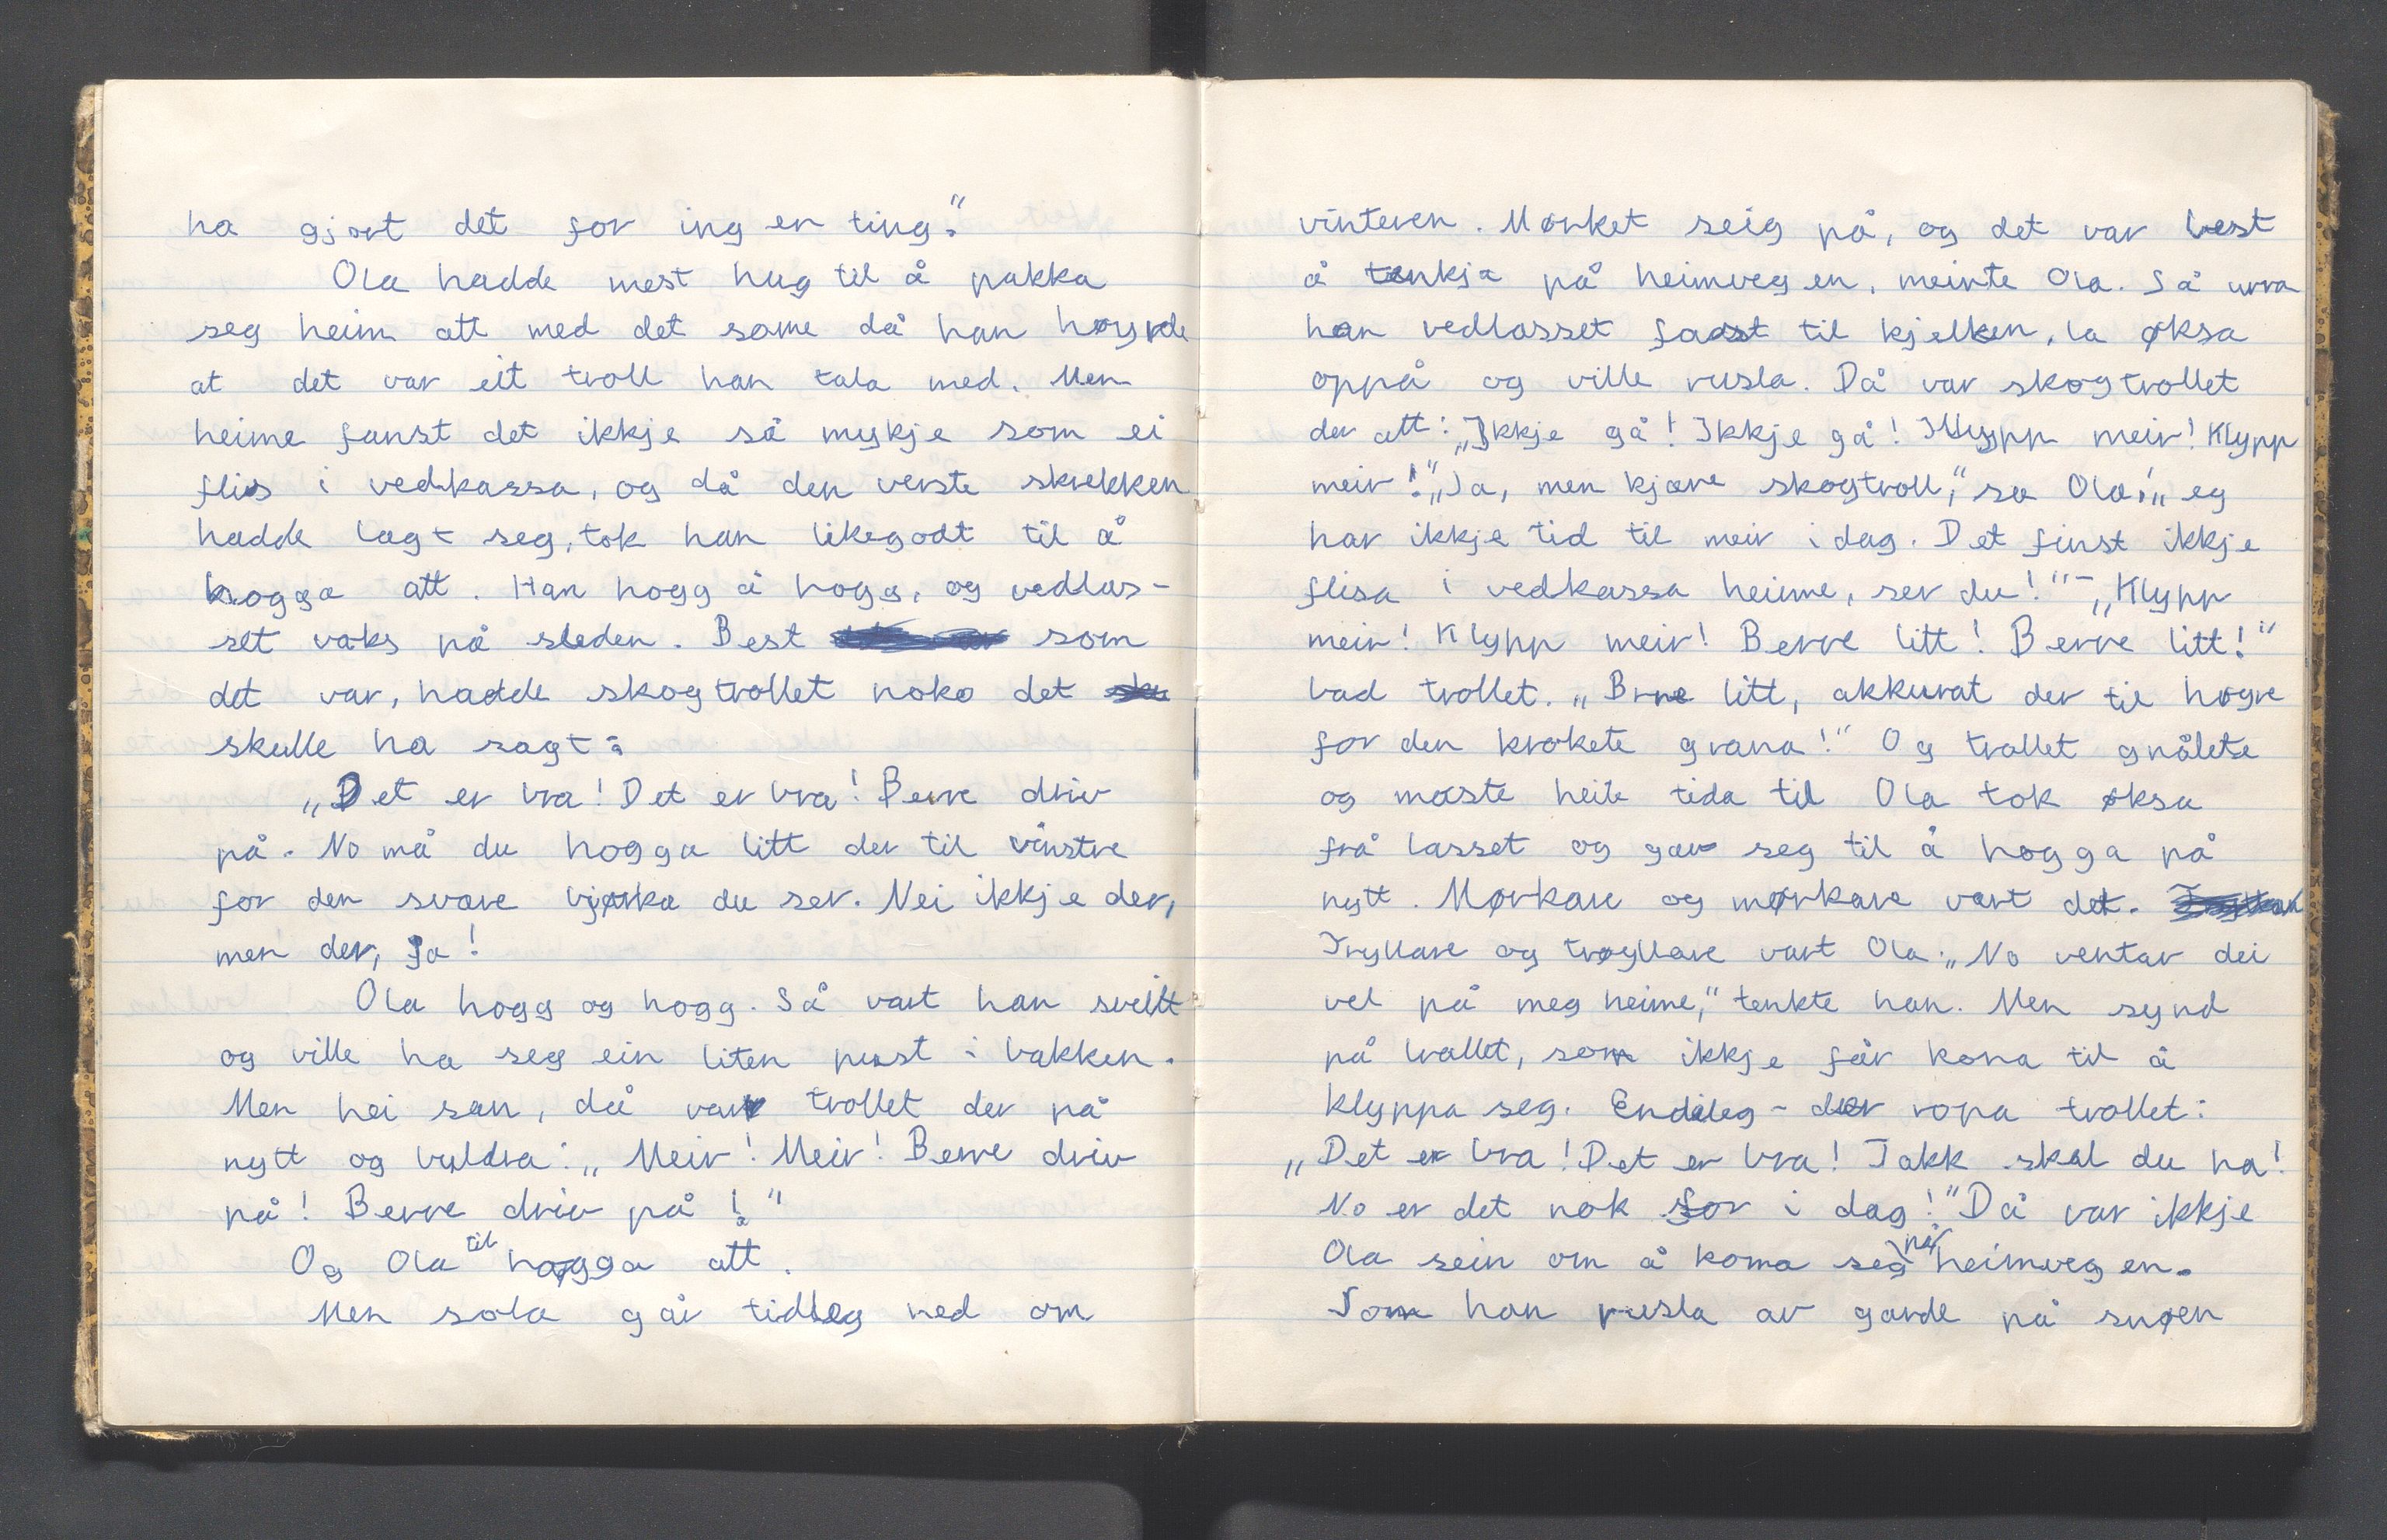 ha gjort det for ingen ting."
Ola hadde mest hug til å pakka
seg heim att med det same då han høyrde
at det var eit troll han tala med. Men
heime fanst det ikkje så mykje som ei
flis i vedkassa, og då den verste skrekken
hadde lagt seg, tok han likegodt til å
hogga att. Han hogg å hogg, og vedlas-
set vaks på sleden. Best som
det var, hadde skogtrollet noko det
skulle ha sagt:
„Det er bra! Det er bra! Berre driv
på. No må du hogga litt der til vinstre
for den svære bjørka du ser. Nei ikkje der,
men der, ja!
Ola hogg og hogg. Så vart han sveitt
og ville ha seg ein liten pust i bakken.
Men hei san, då var trollet der på
nytt og buldra: „Meir! Meir! Berre driv
på! Berre driv på!"
Og Ola til å hogga att.
Men sola går tidleg ned om
vinteren. Mørket seig på, og det var best
å tenkja på heimvegen, meinte Ola. Så urra
han vedlasset fast til kjelken, la øksa
oppå og ville rusla. Då var skogtrollet
der att: „Ikkje gå! Ikkje gå! Klypp meir! Klypp
meir!" „Ja, men kjære skogtroll," sa Ola, „eg
har ikkje tid til meir i dag. Det finst ikkje
flisa i vedkassa heime, ser du!" – „Klypp
meir! Klypp meir! Berre litt! Berre litt!"
bad trollet. „Brre litt, akkurat der til høgre
for den krokete grana!" Og trollet gnålete
og maste heile tida til Ola tok øksa
frå lasset og gav seg til å hogga på
nytt. Mørkare og mørkare vart det.
Tryllare og trøyllare vart Ola. „No ventar dei
vel på meg heime," tenkte han. Men synd
på trollet, som ikkje får kona til å
klyppa seg. Endeleg – der ropa trollet:
„Det er bra! Det er bra! Takk skal du ha!
No er det nok for i dag!" Då var ikkje
Ola sein om å koma seg på heimvegen.
Som han rusla av garde på snøen